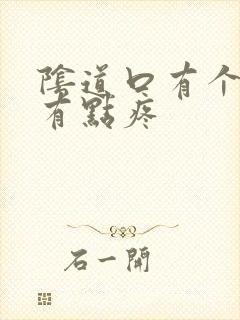 陰道口有个
有點疼
石一開